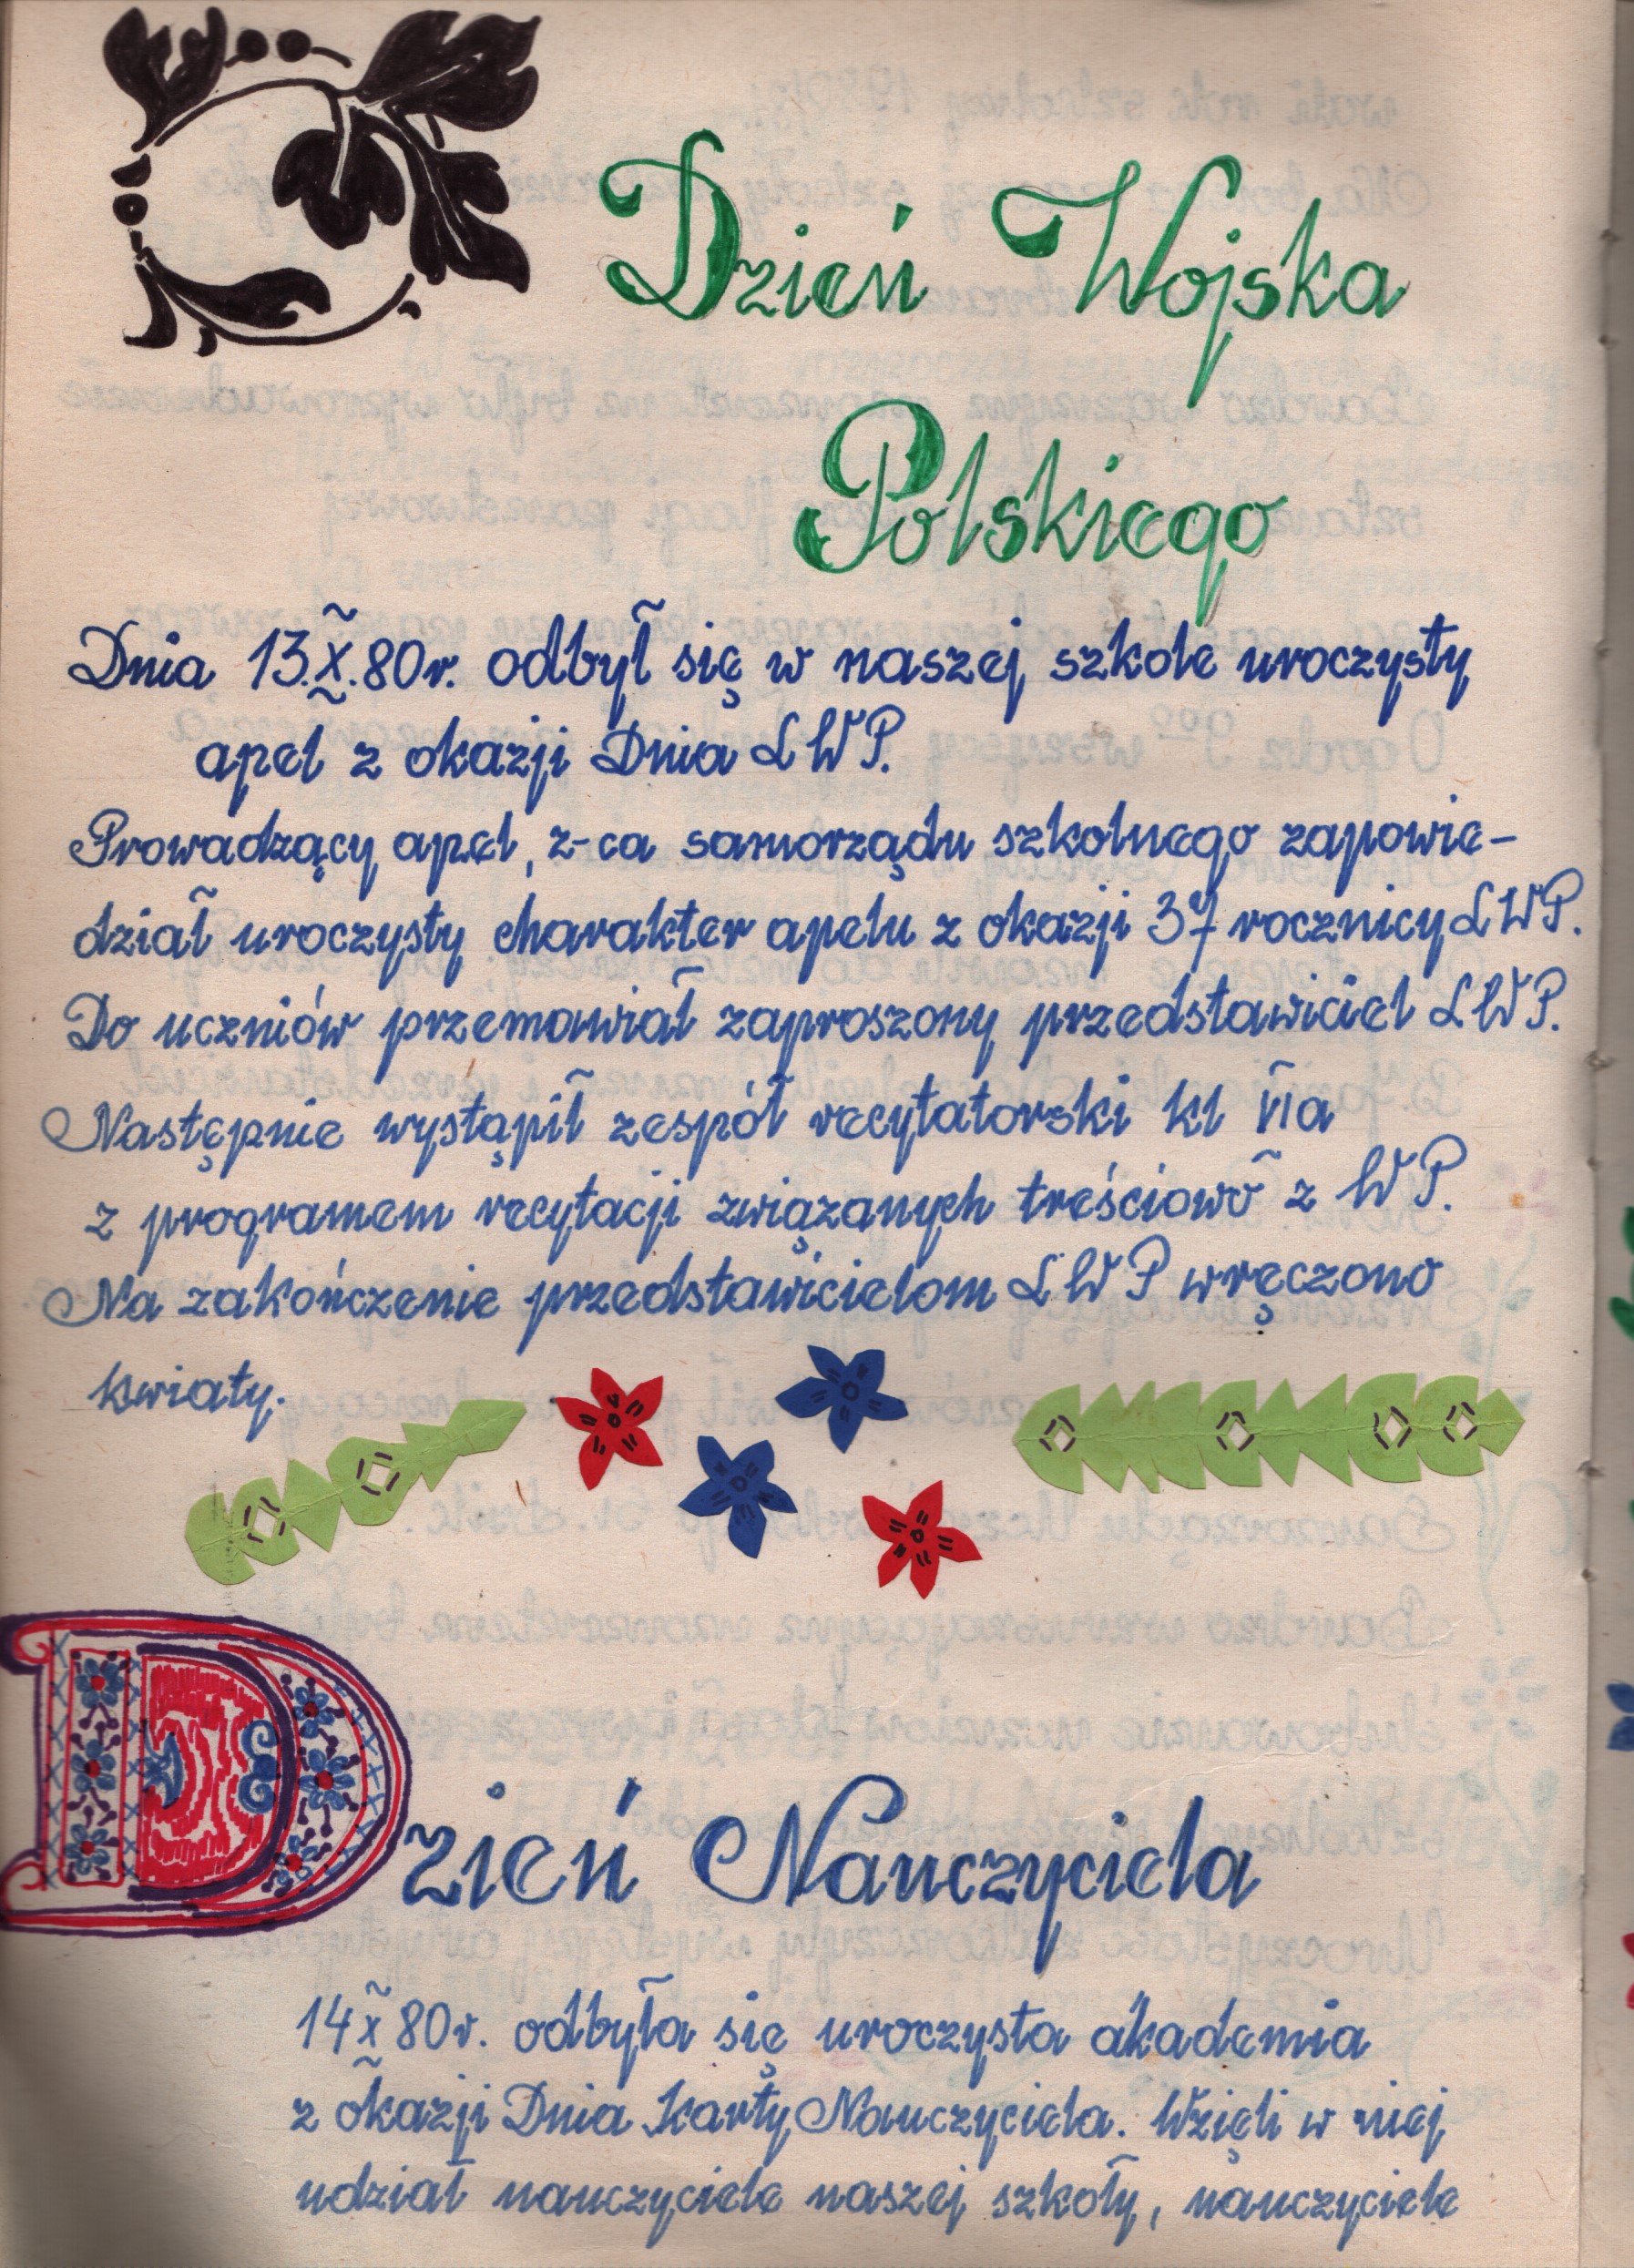 Dzień Wojska
Polskiego
Dnia 13.X.80r. odbył się w naszej szkole uroczysty
apel z okazji Dnia LWP.
Prowadzący apel, z-ca samorządu szkolnego zapowie-
dział uroczysty charakter apelu z okazji 37 rocznicy LWP.
Do uczniów przemawiał zaproszony przedstawiciel LWP.
Następnie wystąpił zespół recytatorski kl VIa
z programem recytacji związanych treściowo z WP.
Na zakończenie przedstawicielom LWP wręczono
kwiaty.
Dzień Nauczyciela
14 X 80r. odbyła się uroczysta akademia
z okazji Dnia Karty Nauczyciela. Wzięli w niej
udział nauczyciele naszej szkoły, nauczyciele